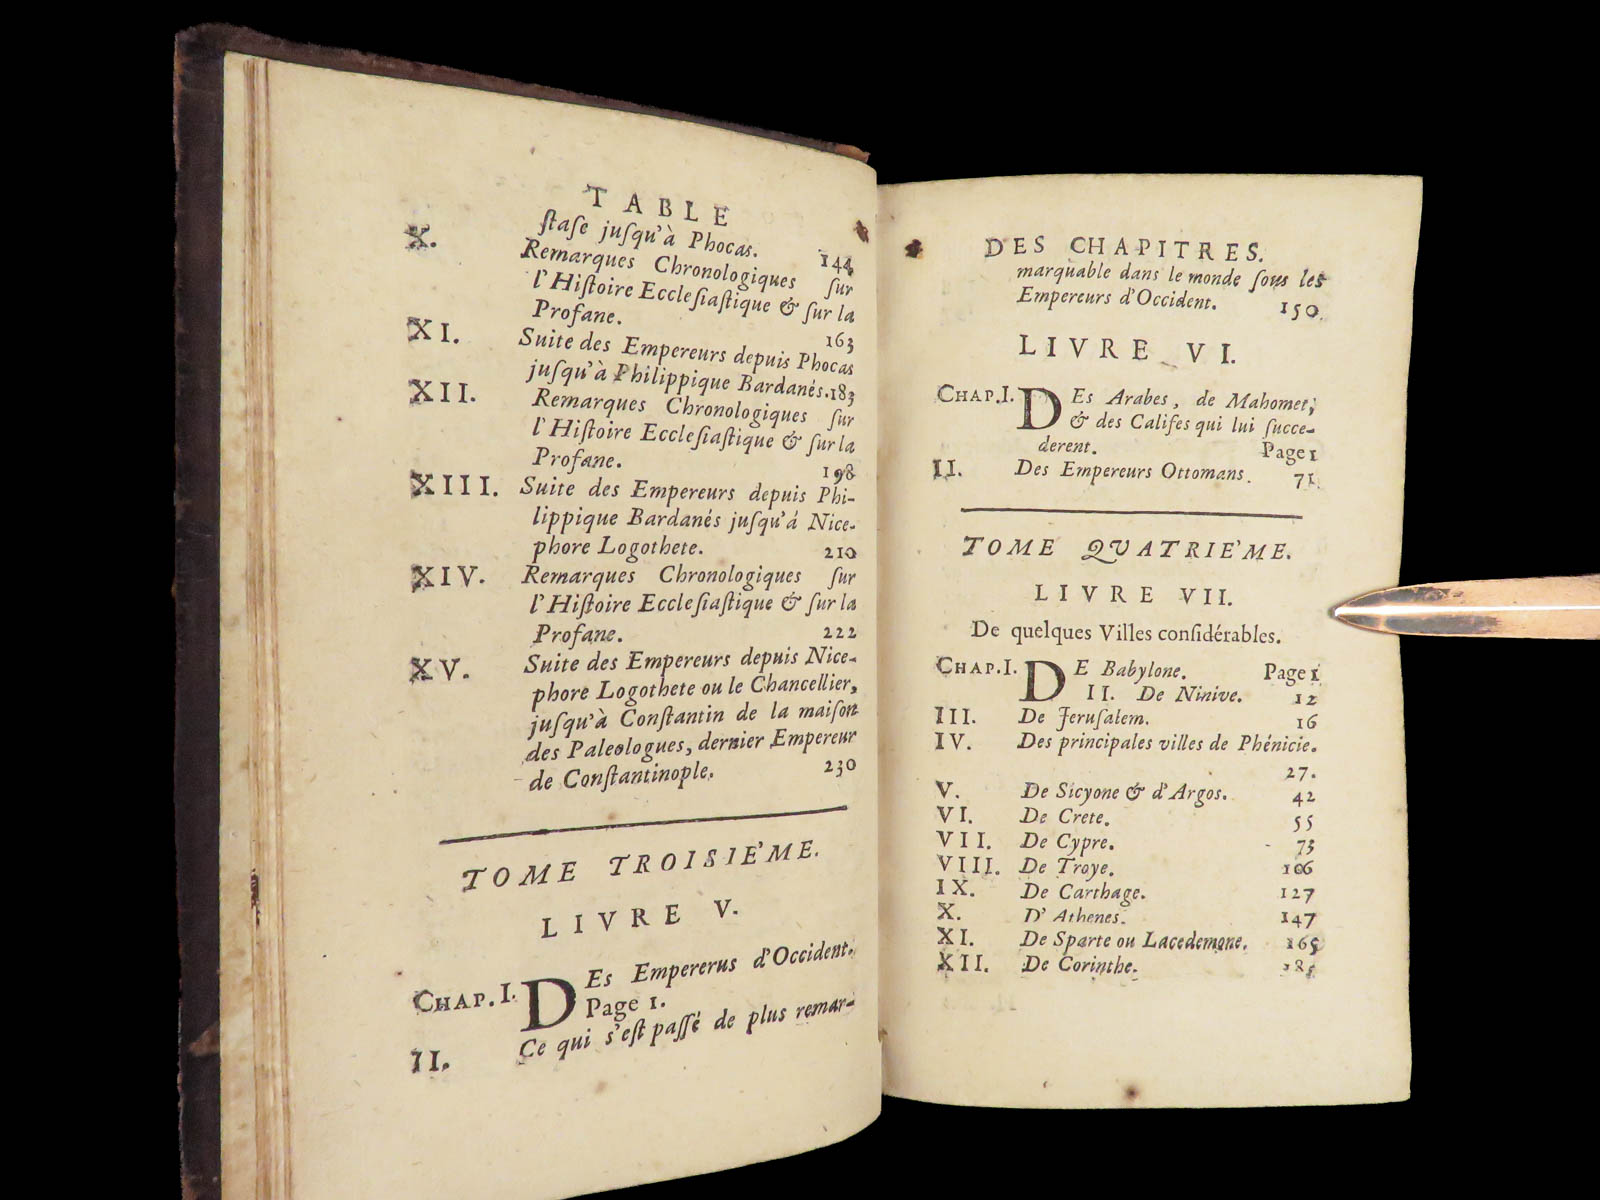 TABLE
ſtaſe juſqu'à Phocas. 144
X. Remarques Chronologiques ſur
l'Hiſtoire Eccleſiaſtique & ſur la
Profane. 163
XI. Suite des Empereurs depuis Phocas
juſqu'à Philippique Bardanés. 183
XII. Remarques Chronologiques ſur
l'Hiſtoire Eccleſiaſtique & ſur la
Profane. 198
XIII. Suite des Empereurs depuis Phi-
lippique Bardanés juſqu'á Nice-
phore Logothete. 210
XIV. Remarques Chronologiques ſur
l'Hiſtoire Eccleſiaſtique & ſur la
Profane. 222
XV. Suite des Empereurs depuis Nice-
phore Logothete ou le Chancellier,
juſqu'à Conſtantin de la maiſon
des Paleologues, dernier Empereur
de Conſtantinople. 230
TOME TROISIE'ME.
LIVRE V.
CHAP. I. DEs Empererus d'Occident.
Page 1.
II. Ce qui s'eſt paſſé de plus remar-
DES CHAPITRES.
marquable dans le monde ſous les
Empereurs d'Occident. 150.
LIVRE VI.
CHAP. I. DEs Arabes, de Mahomet,
& des Califes qui lui ſucce-
derent. Page 1
II. Des Empereurs Ottomans. 71
TOME QVATRIE'ME.
LIVRE VII.
De quelques Villes conſidérables.
CHAP. I. DE Babylone. Page 1
II. De Ninive. 12
III. De Jeruſalem. 16
IV. Des principales villes de Phénicie.
27.
V. De Sicyone & d'Argos. 42
VI. De Crete. 55
VII. De Cypre. 73
VIII. De Troye. 106
IX. De Carthage. 127
X. D'Athenes. 147
XI. De Sparte ou Lacedemone. 165
XII. De Corinthe. 185